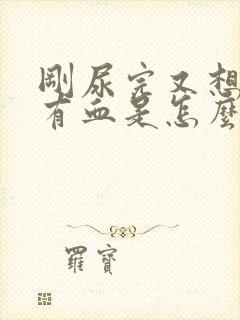 剛尿完又想
有血是怎麼
羅寶